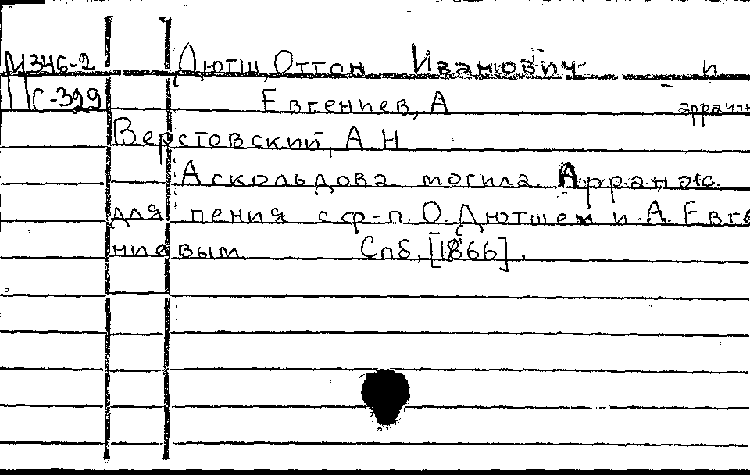 М346-2 Дютш, Оттон Иванович и
ПС-399 Евгениев, А
Верстовский, А Н
Аскольдова могила. Арранж.
для пения с ф-п. О. Дютшем и А. Евге
ниевым Спб, [1866].